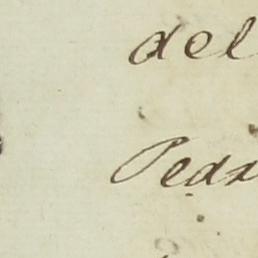 del
Pedr